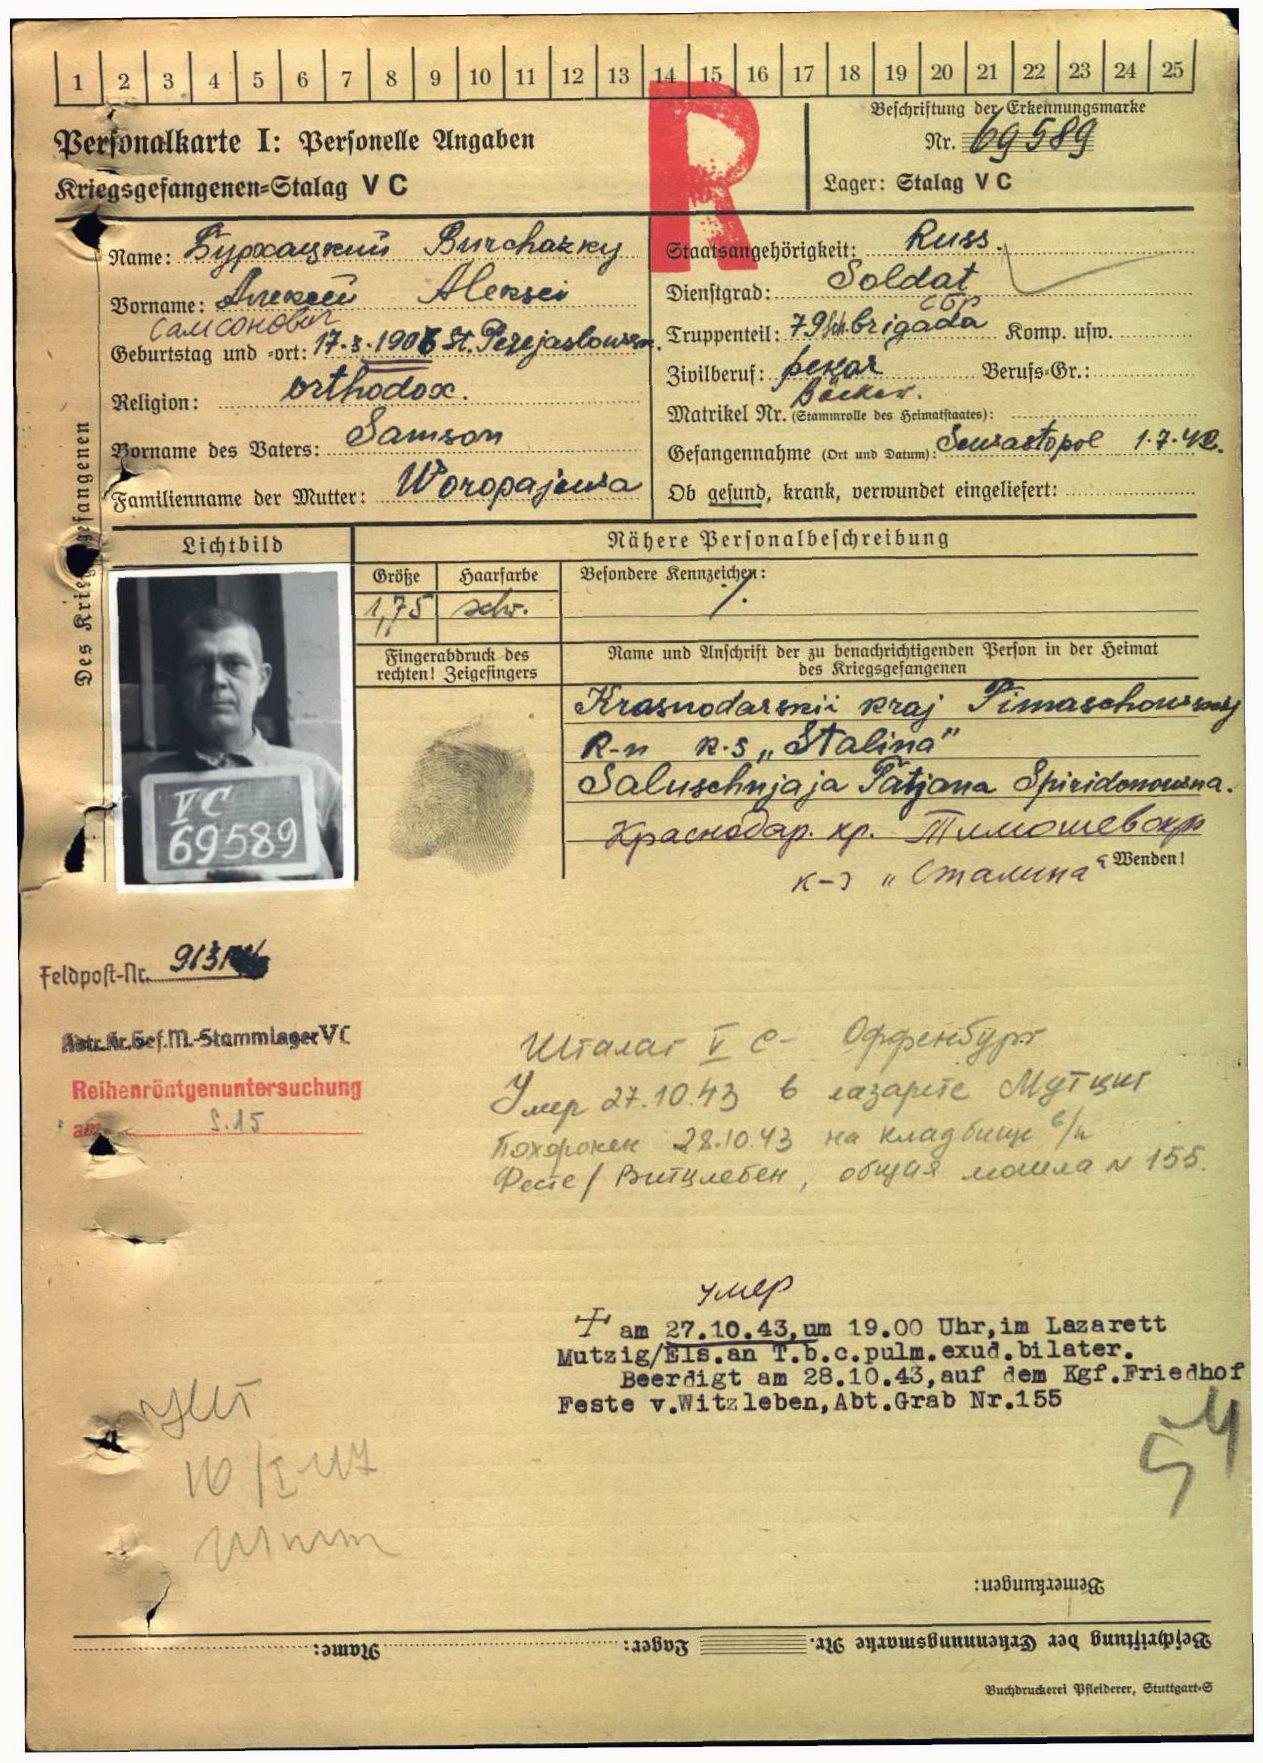 1 2 3 4 5 6 7 8 9 10 11 12 13 14 15 16 17 18 19 20 21 22 23 24 25
R
Personalkarte I: Personelle Angaben
Kriegsgefangenen-Stalag V C
Beschriftung der Erkennungsmarke
Nr. 69589
Lager: Stalag V C
Des Kriegsgefangenen
Name: Бурхацкий Burchazky
Vorname: Алексей Aleksei
Самсонович
Geburtstag und -ort: 17.3.1906 St. Perejaslowsk.
Religion: orthodox.
Vorname des Vaters: Samson
Familienname der Mutter: Woropajewa
Staatsangehörigkeit: Russ.
Dienstgrad: Soldat
сбр
Truppenteil: 79 Sch. brigada Komp. usw.
Zivilberuf: pekar Berufs-Gr.:
Bäcker.
Matrikel Nr. (Stammrolle des Heimatstaates):
Gefangennahme (Ort und Datum): Sewastopol 1.7.42.
Ob gesund, krank, verwundet eingeliefert:
Lichtbild
Nähere Personalbeschreibung
Größe Haarfarbe Besondere Kennzeichen:
1,75 schw. ./.
Fingerabdruck des
rechten! Zeigefingers
Name und Anschrift der zu benachrichtigenden Person in der Heimat
des Kriegsgefangenen
V C
69589
Krasnodarskii kraj Timaschowskij
R-n k-s „Stalina"
Saluschnjaja Tatjana Spiridonowna.
Краснодар. кр. Тимошевский
к-з „Сталина"
Wenden!
Feldpost-Nr. 913
Kr.Gef.M.-Stammlager V C
Reihenröntgenuntersuchung
am S.15
Шталаг V C - Оффенбург
Умер 27.10.43 в лазарете Мутциг
Похоронен 28.10.43 на кладбище в/п
Фесте / Витцлебен, общая могила N 155.
умер
† am 27.10.43,um 19.00 Uhr,im Lazarett
Mutzig/Els.an T.b.c.pulm.exud.bilater.
Beerdigt am 28.10.43,auf dem Kgf.Friedhof
Feste v.Witzleben,Abt.Grab Nr.155
54
Bemerkungen:
Beschriftung der Erkennungsmarke Nr. Lager: Name:
Buchdruckerei Pfleiderer, Stuttgart-S